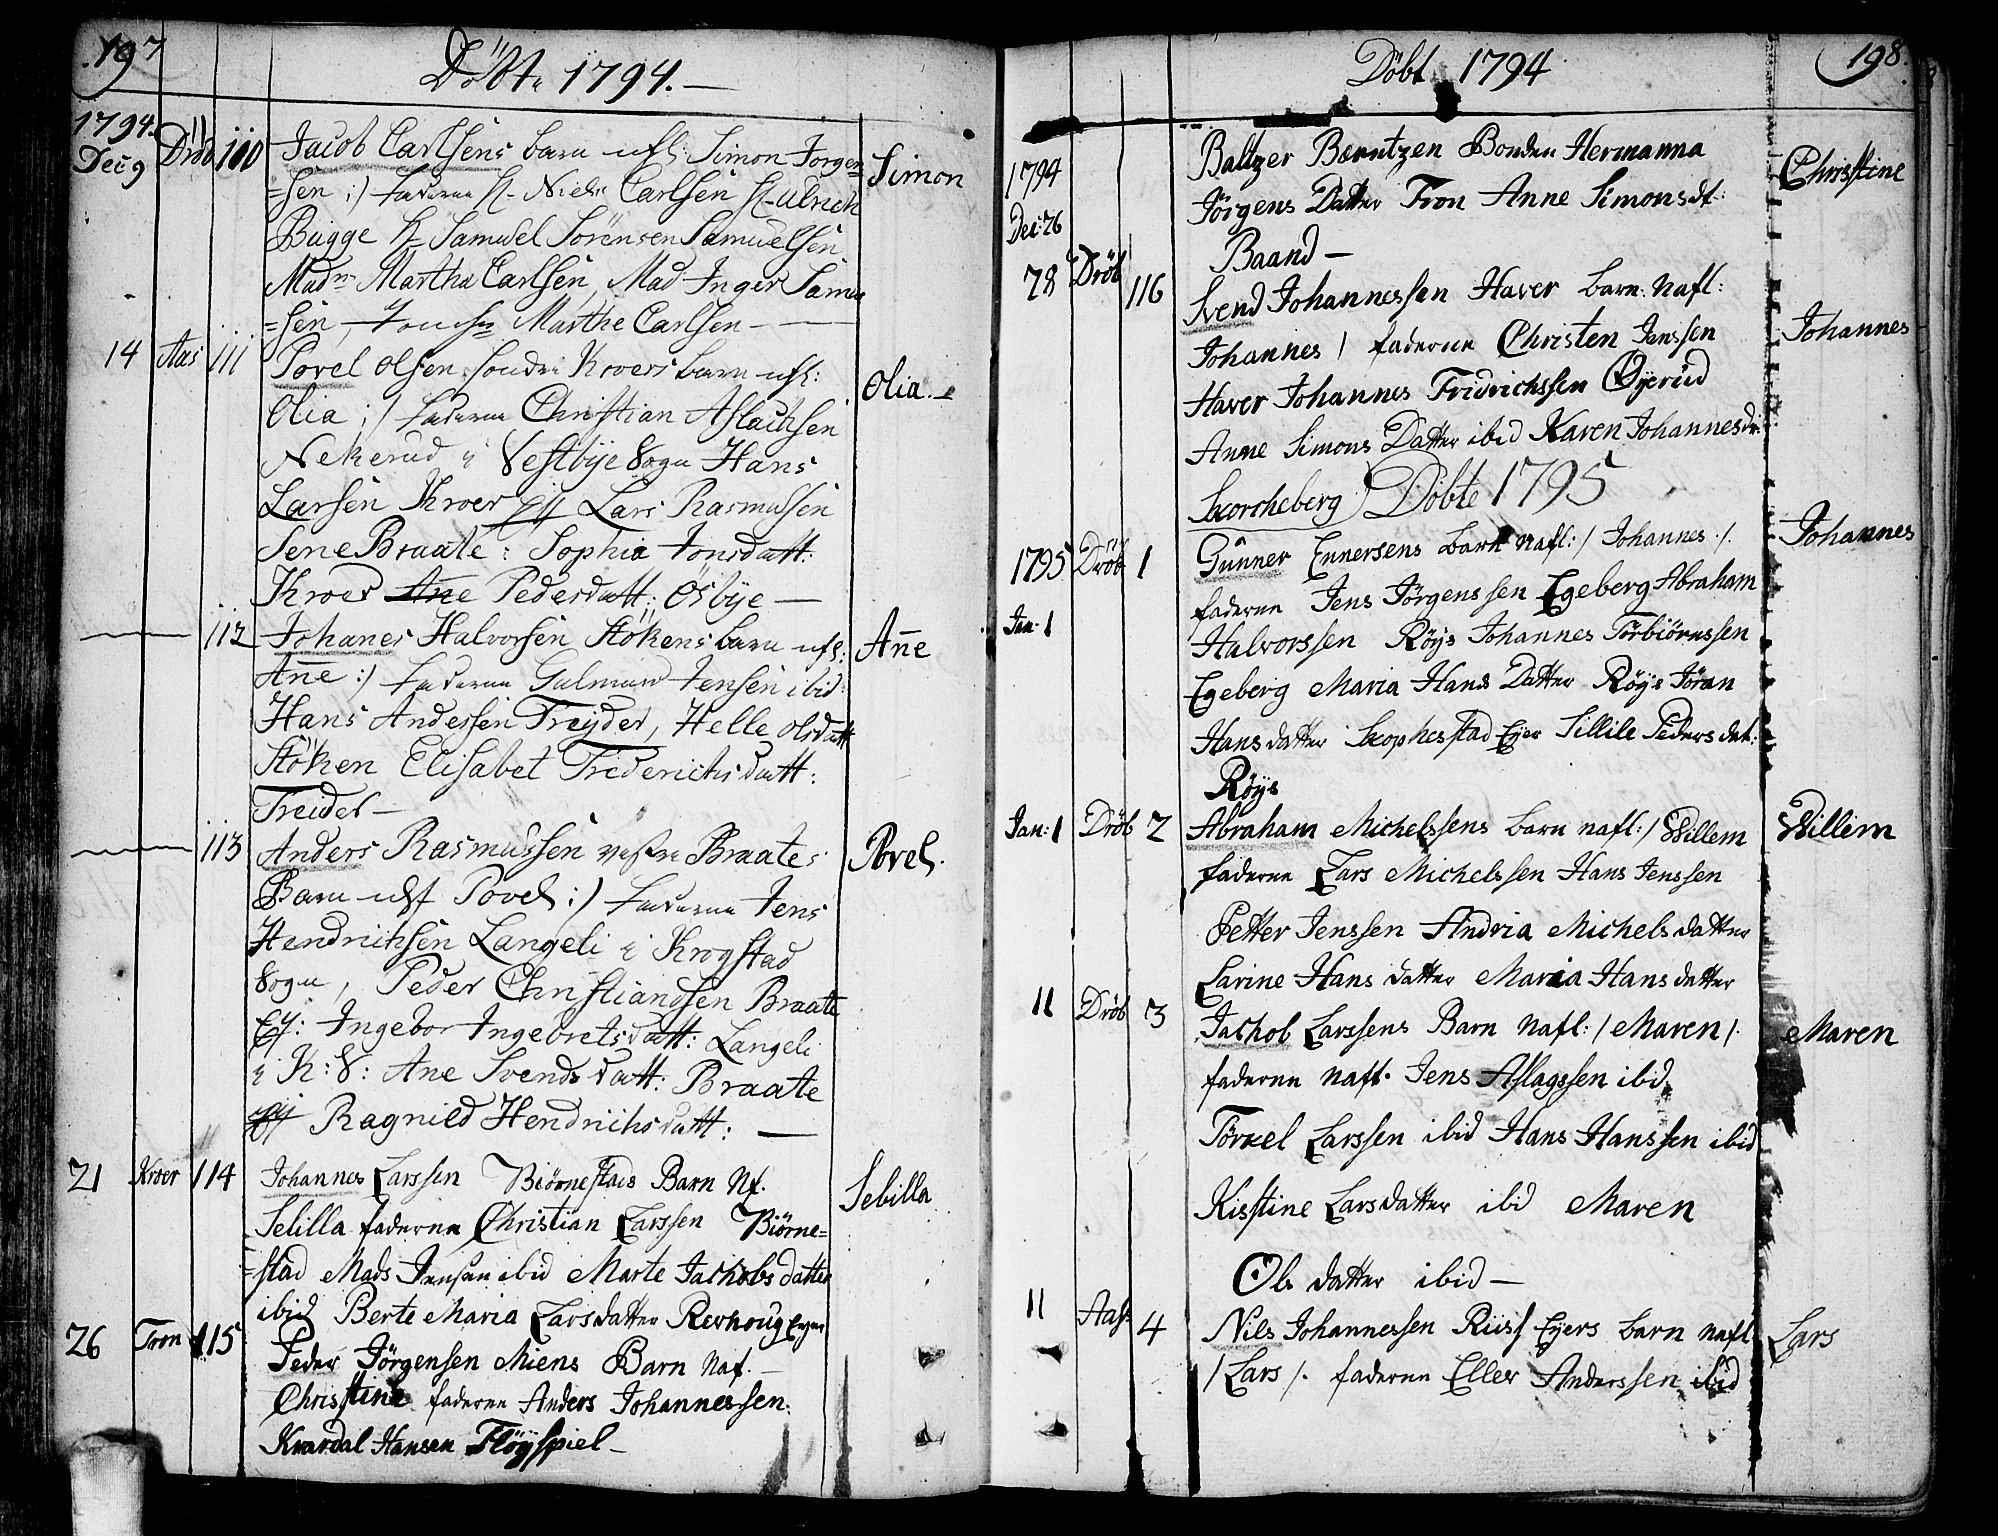 197
Döbte 1794.—
1794. Dec 9 Dröb 110 Jacob Carlsens barn nfl: Simon Jörgen= Simon
=sen :/ faderne H. Niels Carlsen H. Ulrich
Bugge H. Samuel Sörensen Samuelsen
Madm Martha Carlsen, Mad Inger Samu
=sen, Marthe Carlsen —
14 Aas 111 Povel Olsen söndre Kroers barn nfl: Olia.
Olia :/ faderne Christian Aslachsen
Nekerud i Vestbye Sogn Hans
Larsen Kroer Ey Lars Rasmussen
Sene Braate: Sophia Jonsdatt:
Kroer Ane Pedersdatt: Osbye —
112 Johanes Halvorsen Stökens barn nfl: Ane
Ane :/ faderne Gulmund Jensen ibid:
Hans Andersen Treyder, Helle Olsdatt
Stöken Elisabet Friderichsdatt:
Treider —
113 Anders Rasmussen vestre Braates Povel.
Barn nfl Povel :/ faderne Jens
Hendrichsen Langeli i Krogstad
Sogn, Peder Christiansen Braate
Ey: Ingebor Ingebretsdatt: Langeli
i K: S: Ane Svendsdatt: Braate
Ey Ragnild Hendrichsdatt: —
21 Kroer 114 Johannes Larssen Biörnestads Barn Nf. Sebilla
Selilla faderne Christian Larssen Biörne=
=stad Mads Jensen ibid Marte Jachobs datter
ibid Berte Maria Larsdatter Rerhoug Eyer
26 Fron 115 Peder Jörgensen Miens Barn Naf. —
Chrisstine faderne Anders Johannessen.
Kvardal Hansen Flöyspiel —
198.
Döbt 1794
1794 Dec: 26 Baltzer Bærntzen Bonden Hermanna Chrisstine
Jörgens Datter Fron Anne Simonsdt:
Baand —
28 Dröb 116 Svend Johannessen Haver barn: Nafl: Johannes
Johannes / faderne Christen Jenssen
Haver Johannes Fridrichssen Öyerud
Anne Simons Datter ibid Karen Johannesdr:
Skorcheberg) Döbte 1795
1795 Jan: 1 Dröb 1 Gunner Ennersens barn Nafl: / Johannes ./. Johannes
faderne Jens Jörgenssen Egeberg Abraham
Halvorssen Röys Johannes Törbiörnssen
Egeberg Maria Hans Datter Röys Jöran
Hansdatter Skophesstad Eyer Sillile Pedersdat:
Röys
Jan: 1 Dröb 2 Abraham Michelssens barn nafl: / Willem Willem
faderne Lars Michelssen Hans Jenssen
Petter Jenssen Andria Michels datter
Larine Hans datter Maria Hans datter
11 Dröb 3 Jachob Larssens Barn Nafl: / Maren /. Maren
faderne Naft. Jens Aslagssen ibid
Törkel Larssen ibid Hans Hanssen ibid
Kisstine Larsdatter ibid Maren
Ols datter ibid —
11 Aas 4 Nils Johannessen Riiis Eyers barn nafl Lars
/ Lars /. faderne Eller Anderssen ibid